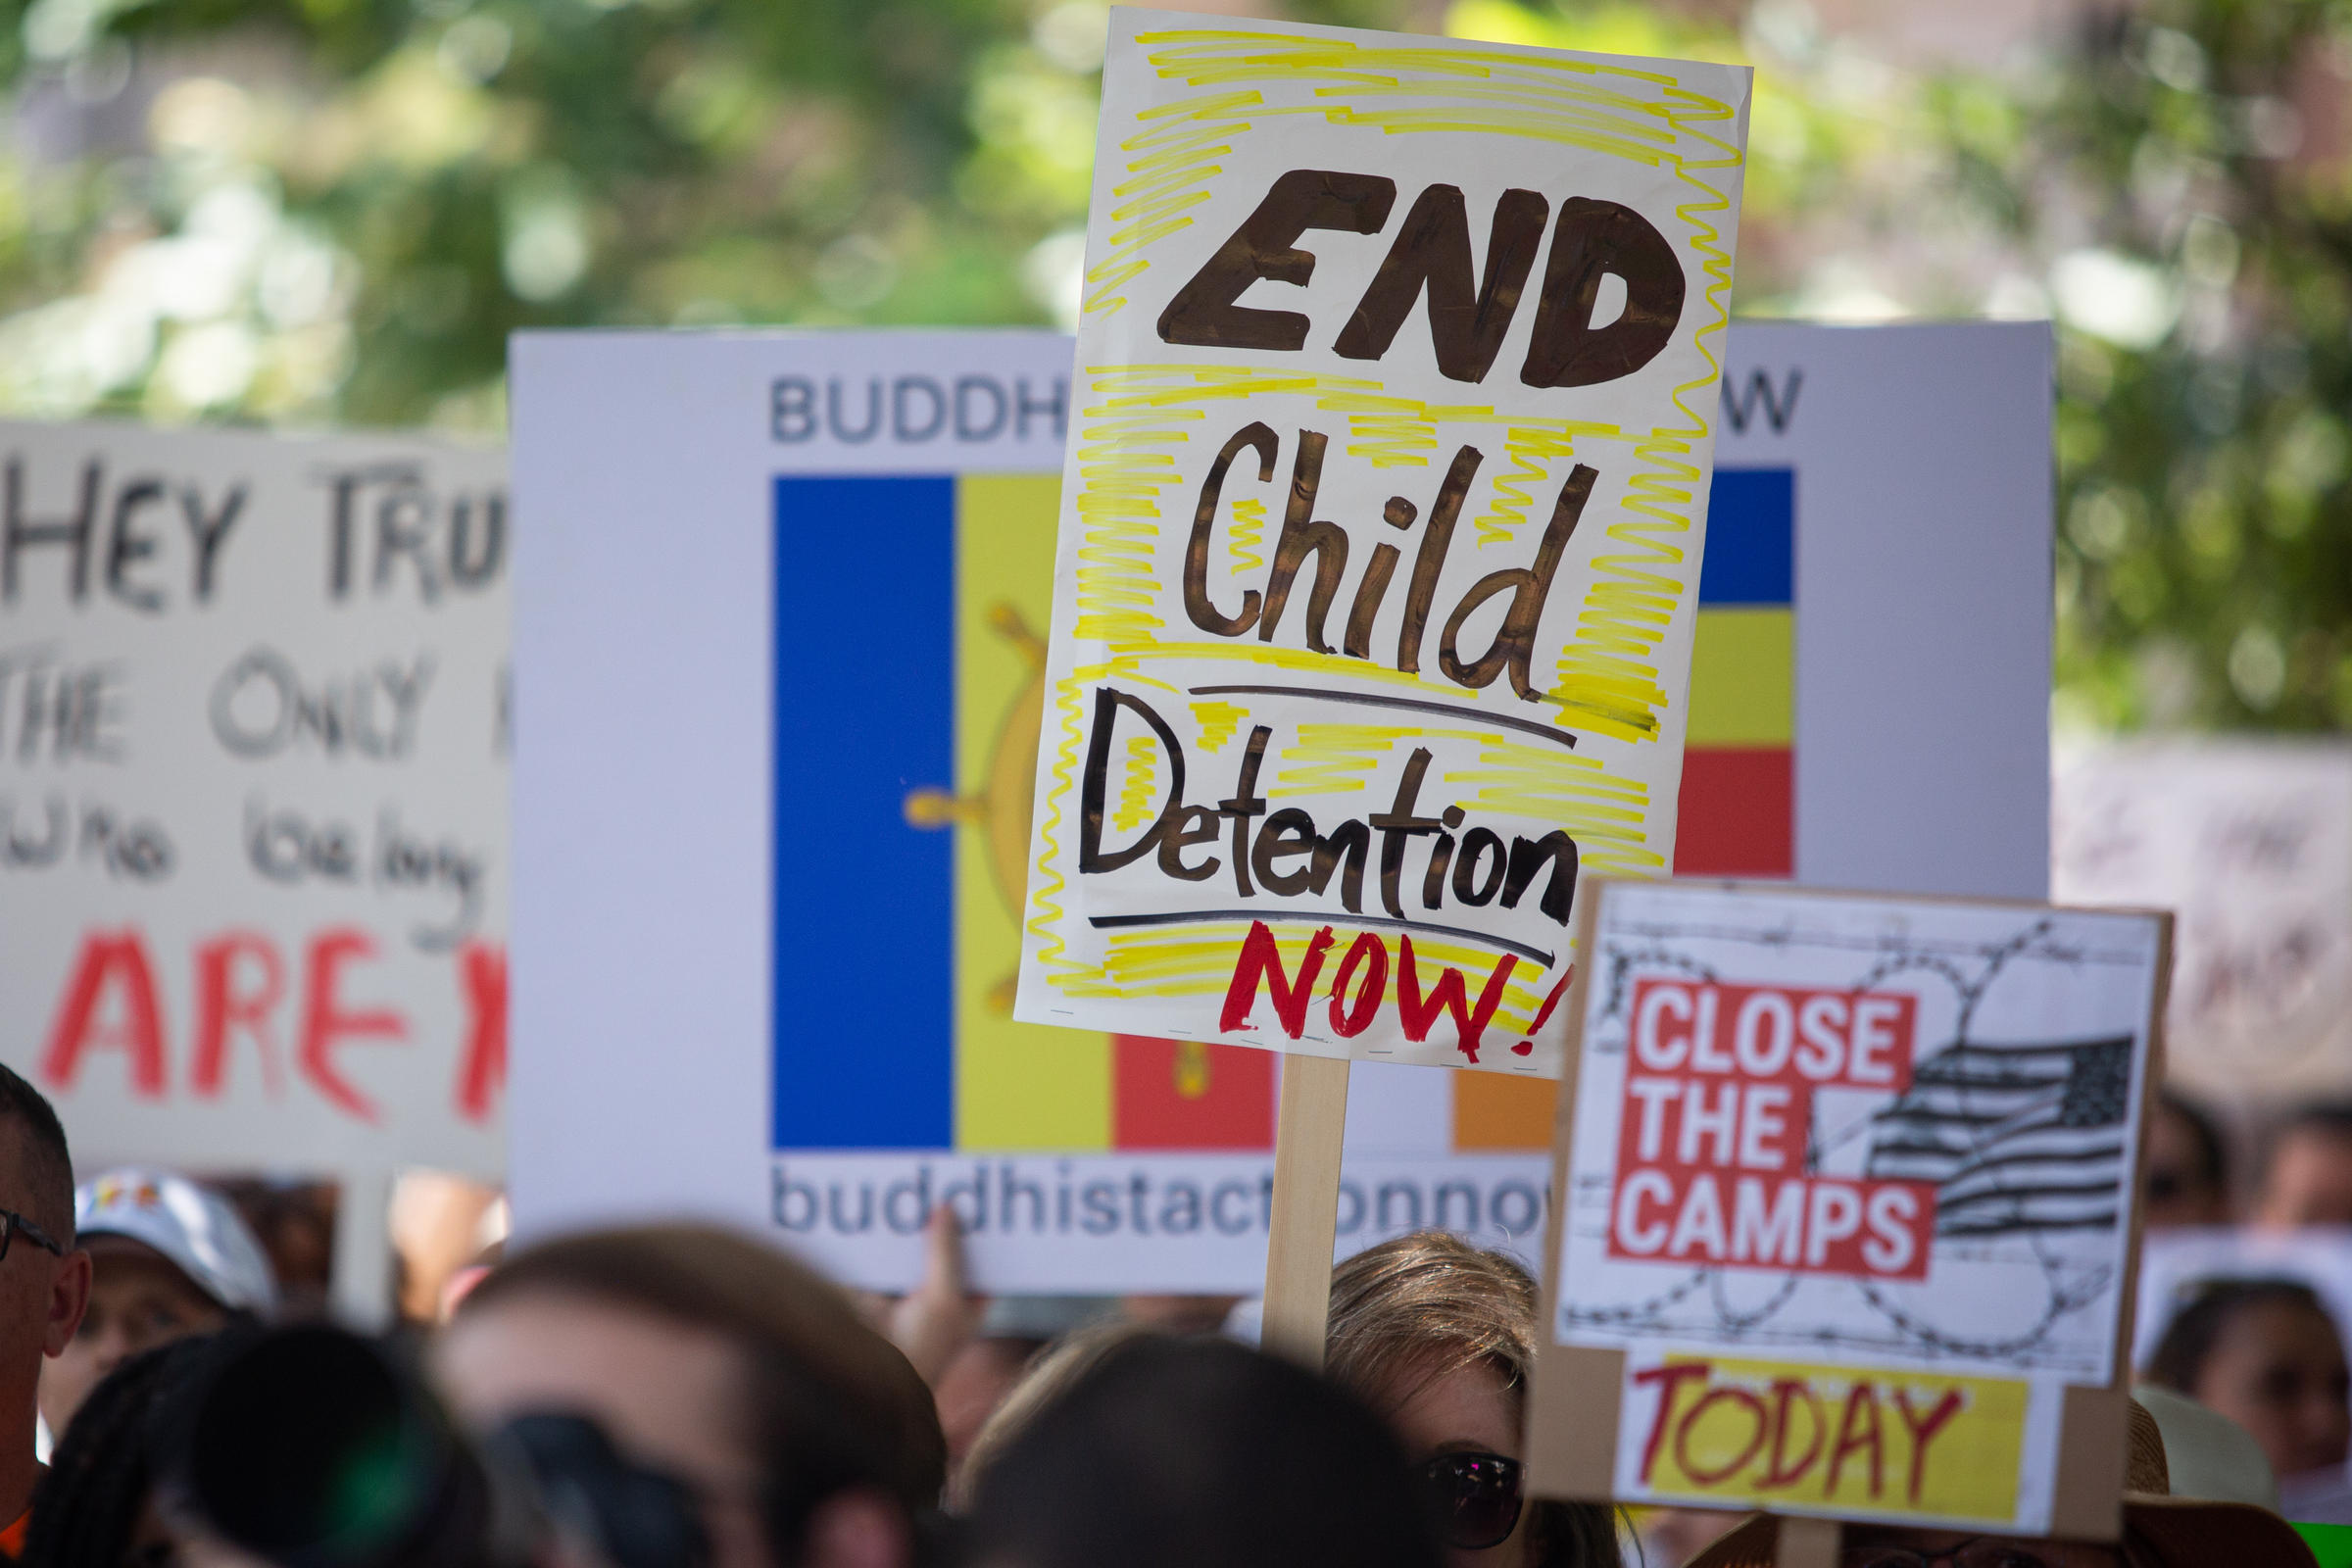 HEY TRU
THE ONLY
who belong
ARE
BUDDH
W
buddhistact onno
END
Child
Detention
NOW!
CLOSE
THE
CAMPS
TODAY